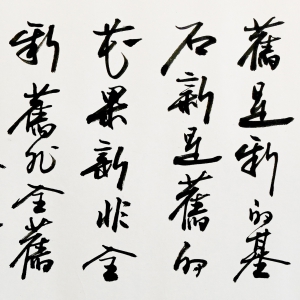 舊是新的基
石新是舊的
花果新非全
新舊非全舊